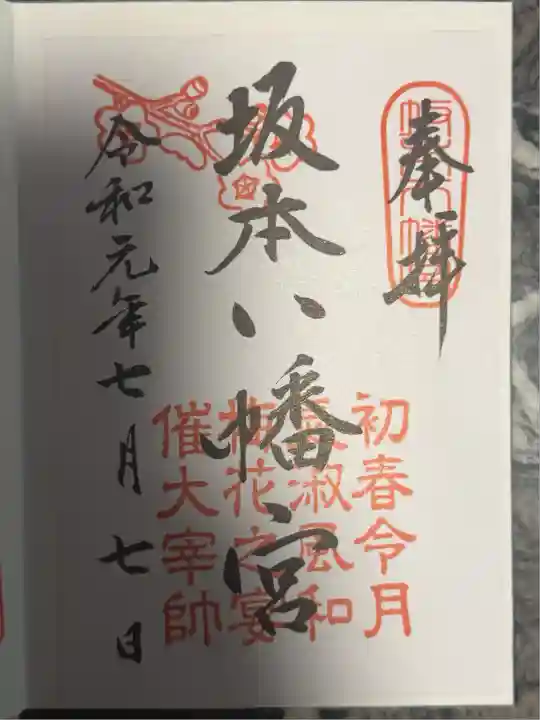 奉拝
坂本八幡宮
令和元年七月七日
初春令月
気淑風和
梅花之宴
催大宰帥